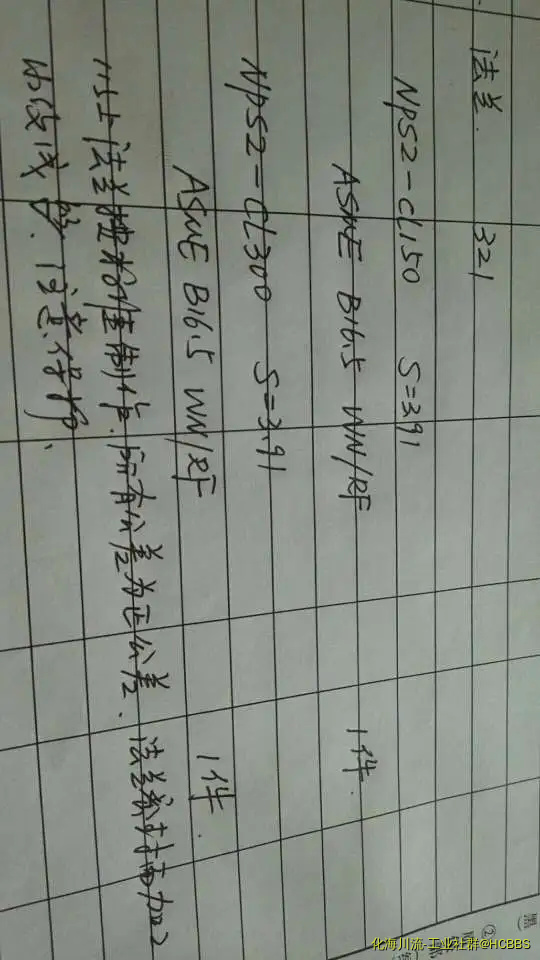 法兰. 321
NPS2-CL150 S=3.91
ASME B16.5 WN/RF 1件.
NPS2-CL300 S=3.91
ASME B16.5 WN/RF 1件.
以上法兰按标准制作.所有公差为正公差.法兰密封面加工
必须成 注意保护、
化海川流-工业社群@HCBBS